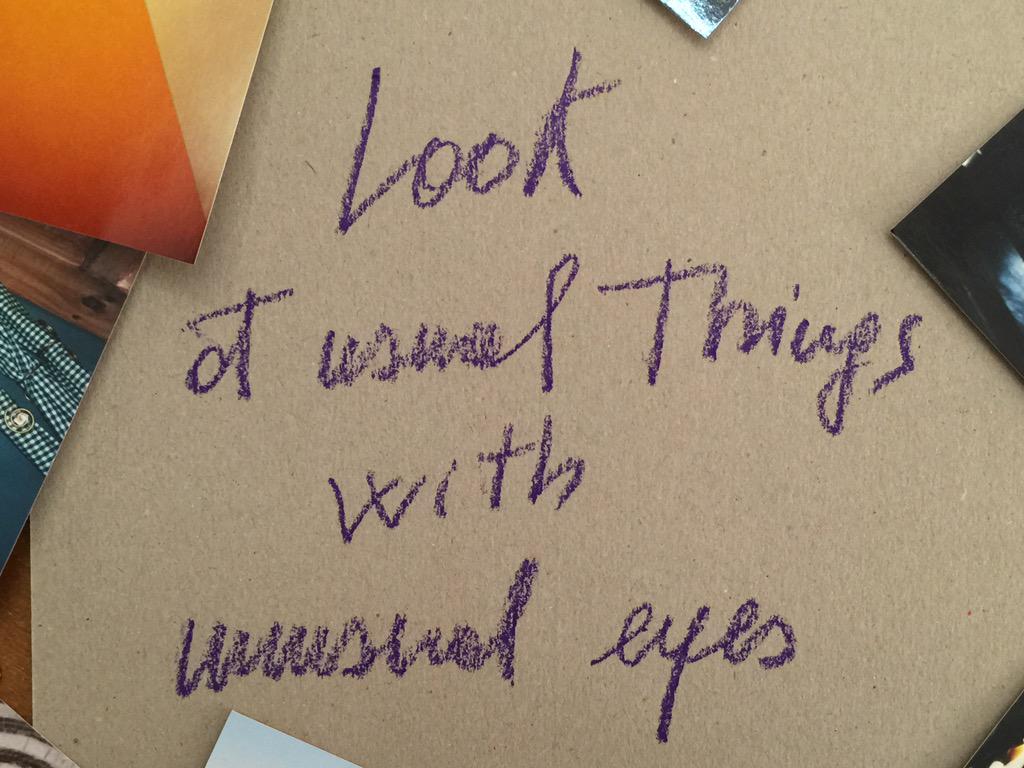 Look
at usual Things
with
unusual eyes